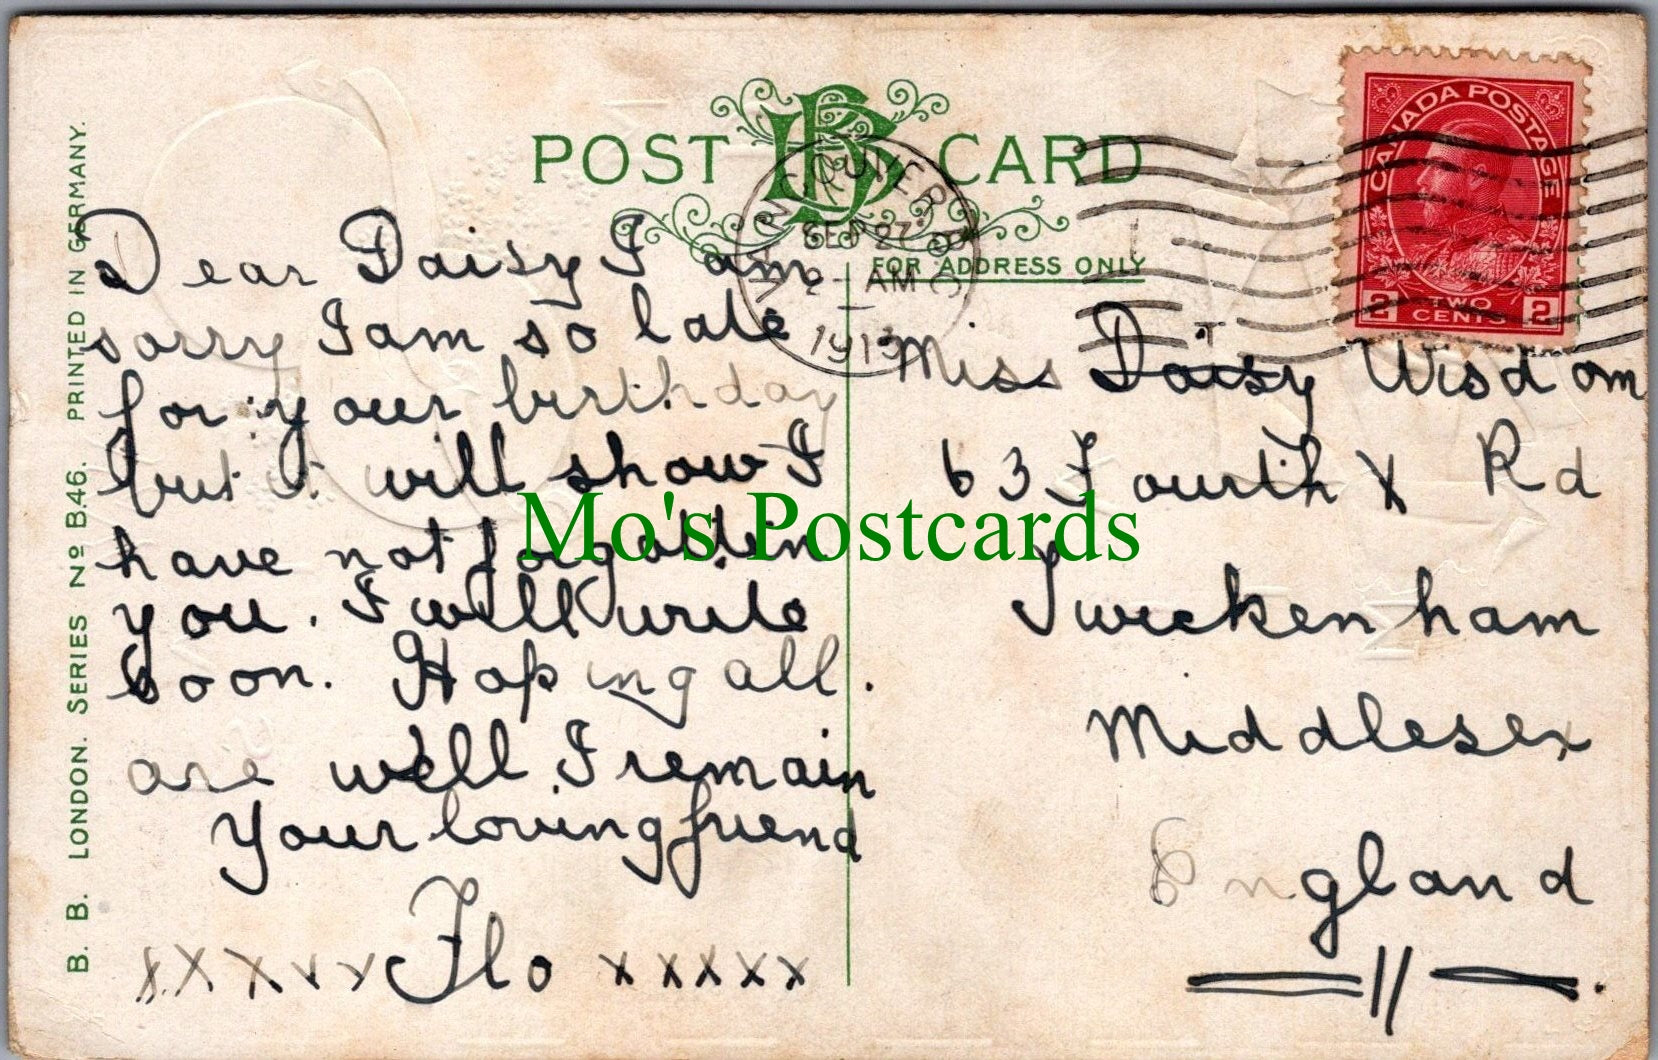 POST CARD
FOR ADDRESS ONLY
CANADA POSTAGE
2 TWO CENTS 2
VANCOUVER
SEP 27
AM
1913
Dear Daisy I am
sorry I am so late
for your birthday
but it will show I
have not forgotten
you. I will write
soon. Hoping all.
are well I remain
Your loving friend
xxxxx Flo xxxxx
Miss Daisy Wisdom
63 Fourth X Rd
Twickenham
Middlesex
England
B. B. LONDON. SERIES No B.46. PRINTED IN GERMANY.
Mo's Postcards